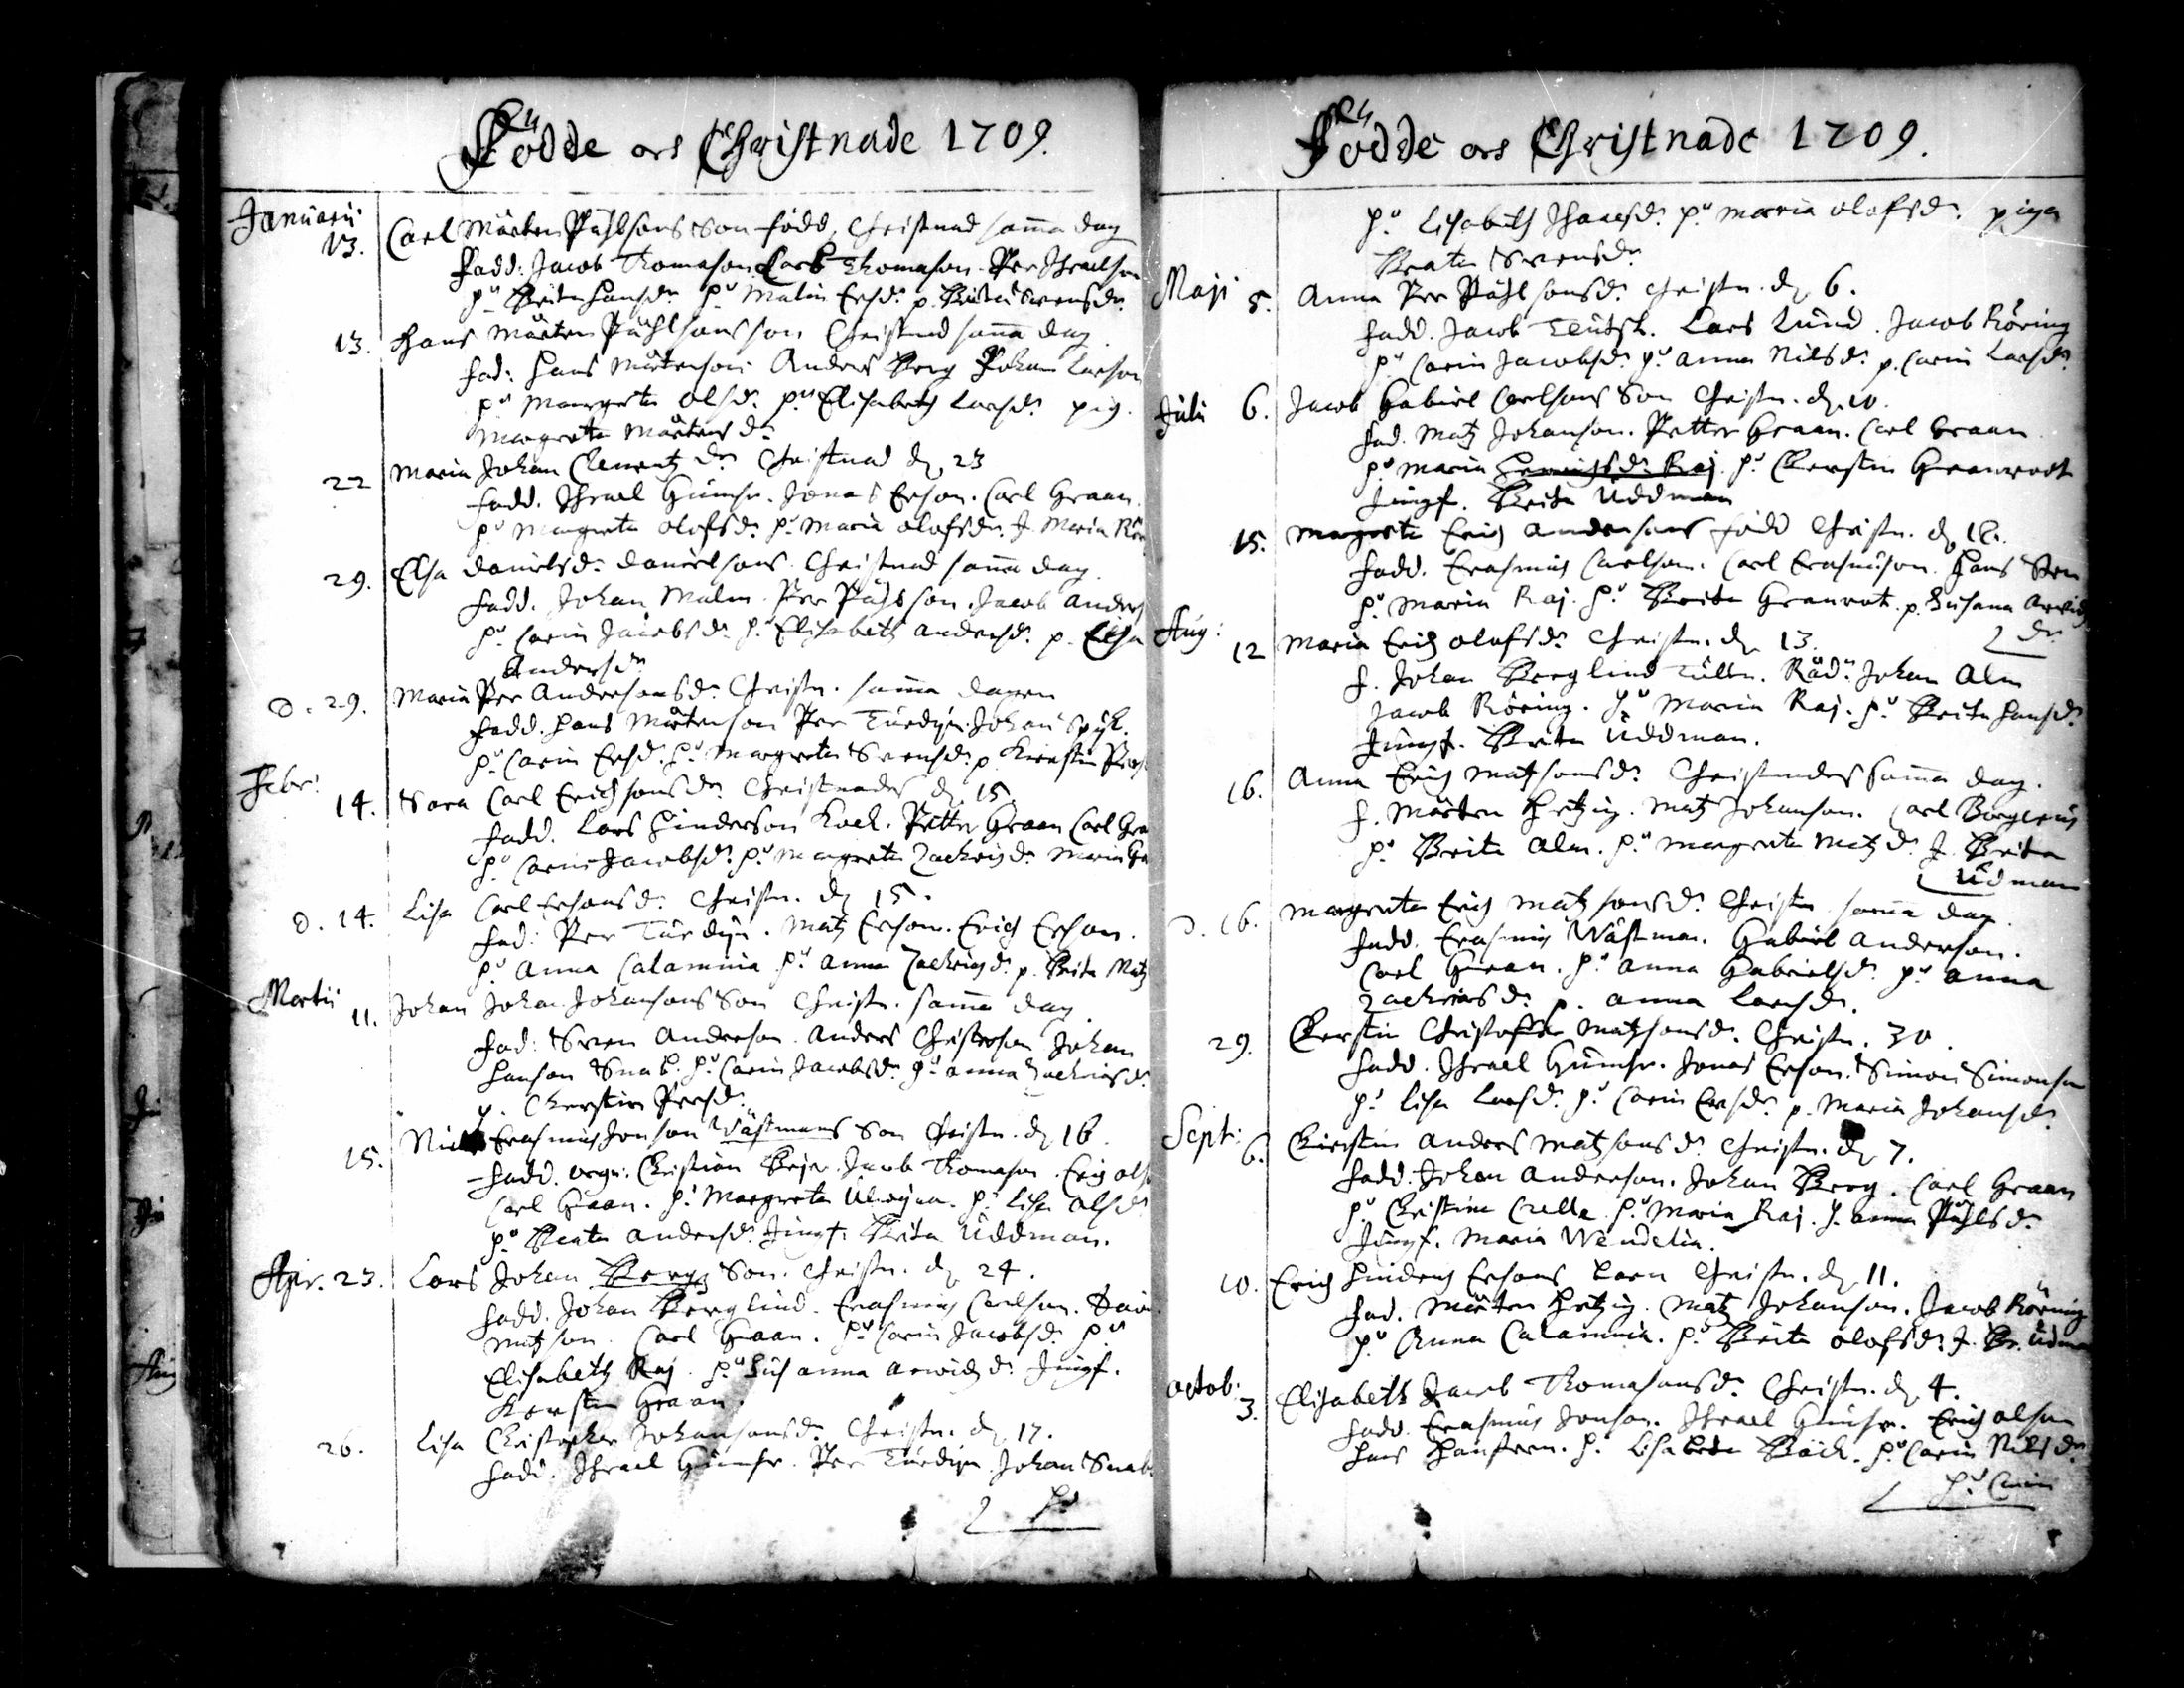 Födde och Christnade 1709.
Januarii
13. Carl Mårten Påhlsons Son född, Christnad samma dag
fadd: Jacob Thomason Lars Thomason. Per Ihraelson
hu Brita Hansdr hu Malin Ersdr p. Svensdr
13. Hans Mårten Påhlsons son Christnad samma dag
fad: Hans Mårtenson Anders Berg Johan Larson
hu Margreta Olsdr hu Elisabeth Larsdr pig.
Margreta Mårtensdr
22 Maria Johan Clementz dr Christnad d. 23
fadd. Ihrael Jonas Erson. Carl Graan.
hu Margreta Olofsdr hu Maria Olofsdr J. Maria
29. Elsa Danielsdr Danielsons. Christnad samma dag.
fadd. Johan Malm. Per Påhlson. Jacob Anders
hu Carin Jacobsdr hu Elisabeth Andersdr p. Elsa
Andersdr
D. 29. Maria Per Andersonsdr Christn. samma dagen
fadd. Hans Mårtenson Per Turdijn Johan
hu Carin Ersdr hu Margreta Svensdr p Kierstin
Febr:
14. Sara Carl Erichsonsdr Christnades d. 15
fadd. Lars Hinderson Kock. Petter Graan Carl
hu Carin Jacobsdr hu Margreta Zachrisdr Maria
D. 14. Lisa Carl Ersonsdr Christn. d. 15.
fad: Per Turdijn. Matz Erson. Erich Erson.
hu Anna Calamnia hu Anna Zachrisdr p. Brita Matz
Martii
11. Johan Johan Johansons Son Christn. samma dag.
fad: Sven Anderson Anders Christerson Johan
Hanson Snab. hu Carin Jacobsdr hu Anna Zachrisdr
p. Kerstin Persdr
15. Erasmus Jonson Wästmans Son Christn. d. 16
fadd. Christian Jacob Thomason. Erich
Carl Graan. hu Margreta hu Lisa Olsdr
hu Beata Andersdr Jungf. Brita Uddman.
Apr. 23. Lars Johan Bergs Son. Christn. d. 24.
fadd. Johan Berglind. Erasmus Carlson.
Matzson. Carl Graan. hu Carin Jacobsdr hu
Elisabeth Raj. hu Susanna Arwidzdr Jungf.
Kerstin Graan.
26. Lisa Christopher Johansonsdr Christn. d. 17.
fadd. Ihrael Per Turdijn Johan Snab
hu
Födde och Christnade 1709.
hu Lisabeth hu Maria Olofsdr piga
Beata Svensdr
Maji 5. Anna Per Påhlsonsdr Christn. d. 6.
fadd. Jacob Teutsk. Lars Lund. Jacob Röring
hu Carin Jacobsdr hu Anna Nilsdr p. Carin Larsdr
Julii 6. Jacob Gabriel Carlsons Son Christn. d. 10.
fad. Matz Johanson. Petter Graan. Carl Graan
hu Maria Raj. hu Kerstin
Jungf. Brita Uddman
15. Margreta Erich Andersons född Christn. d. 18.
fadd. Erasmus Carlson. Carl Erasmuson. Hans
hu Maria Raj. hu Brita p. Susana Arvidz
dr
Aug:
12 Maria Erich Olofsdr Christn. d. 13.
f. Johan Berglind Johan Alm
Jacob Röring. hu Maria Raj. hu Brita Hansdr
Jungf. Brita Uddman.
16. Anna Erich Matzsonsdr Christnades samma dag.
f. Mårten Hetzig. Matz Johanson. Carl
hu Brita Alm. hu Margreta Matzdr J. Brita
Udman
D. 16. Margreta Erich Matzsonsdr Christn samma dag.
fadd. Erasmus Wästman. Gabriel Anderson.
Carl Graan. hu Anna Gabrielsdr hu Anna
Zachrisdr p. Anna Larsdr
29. Kerstin Christoffer Matzsonsdr Christn. 30.
fadd. Ihrael Jonas Erson. Simon Simonson
hu Lisa Larsdr hu Carin Ersdr p. Maria Johansdr
Sept:
6. Kierstin Anders Matzsonsdr Christn. d. 7.
fadd. Johan Anderson. Johan Berg. Carl Graan
hu Christina hu Maria Raj. h. Anna Påhlsdr
Jungf. Maria Wendelia.
10. Erich Hindrich Ersons barn Christn. d. 11.
fad. Mårten Hetzig. Matz Johanson. Jacob Röring
hu Anna Calamnia. hu Brita Olofsdr J. Br. Udman
Octob:
3. Elisabeth Jacob Thomasonsdr Christn. d. 4.
fadd. Erasmus Jonson. Ihrael Erich Olson
hu Carin Nilsdr
hu Carin